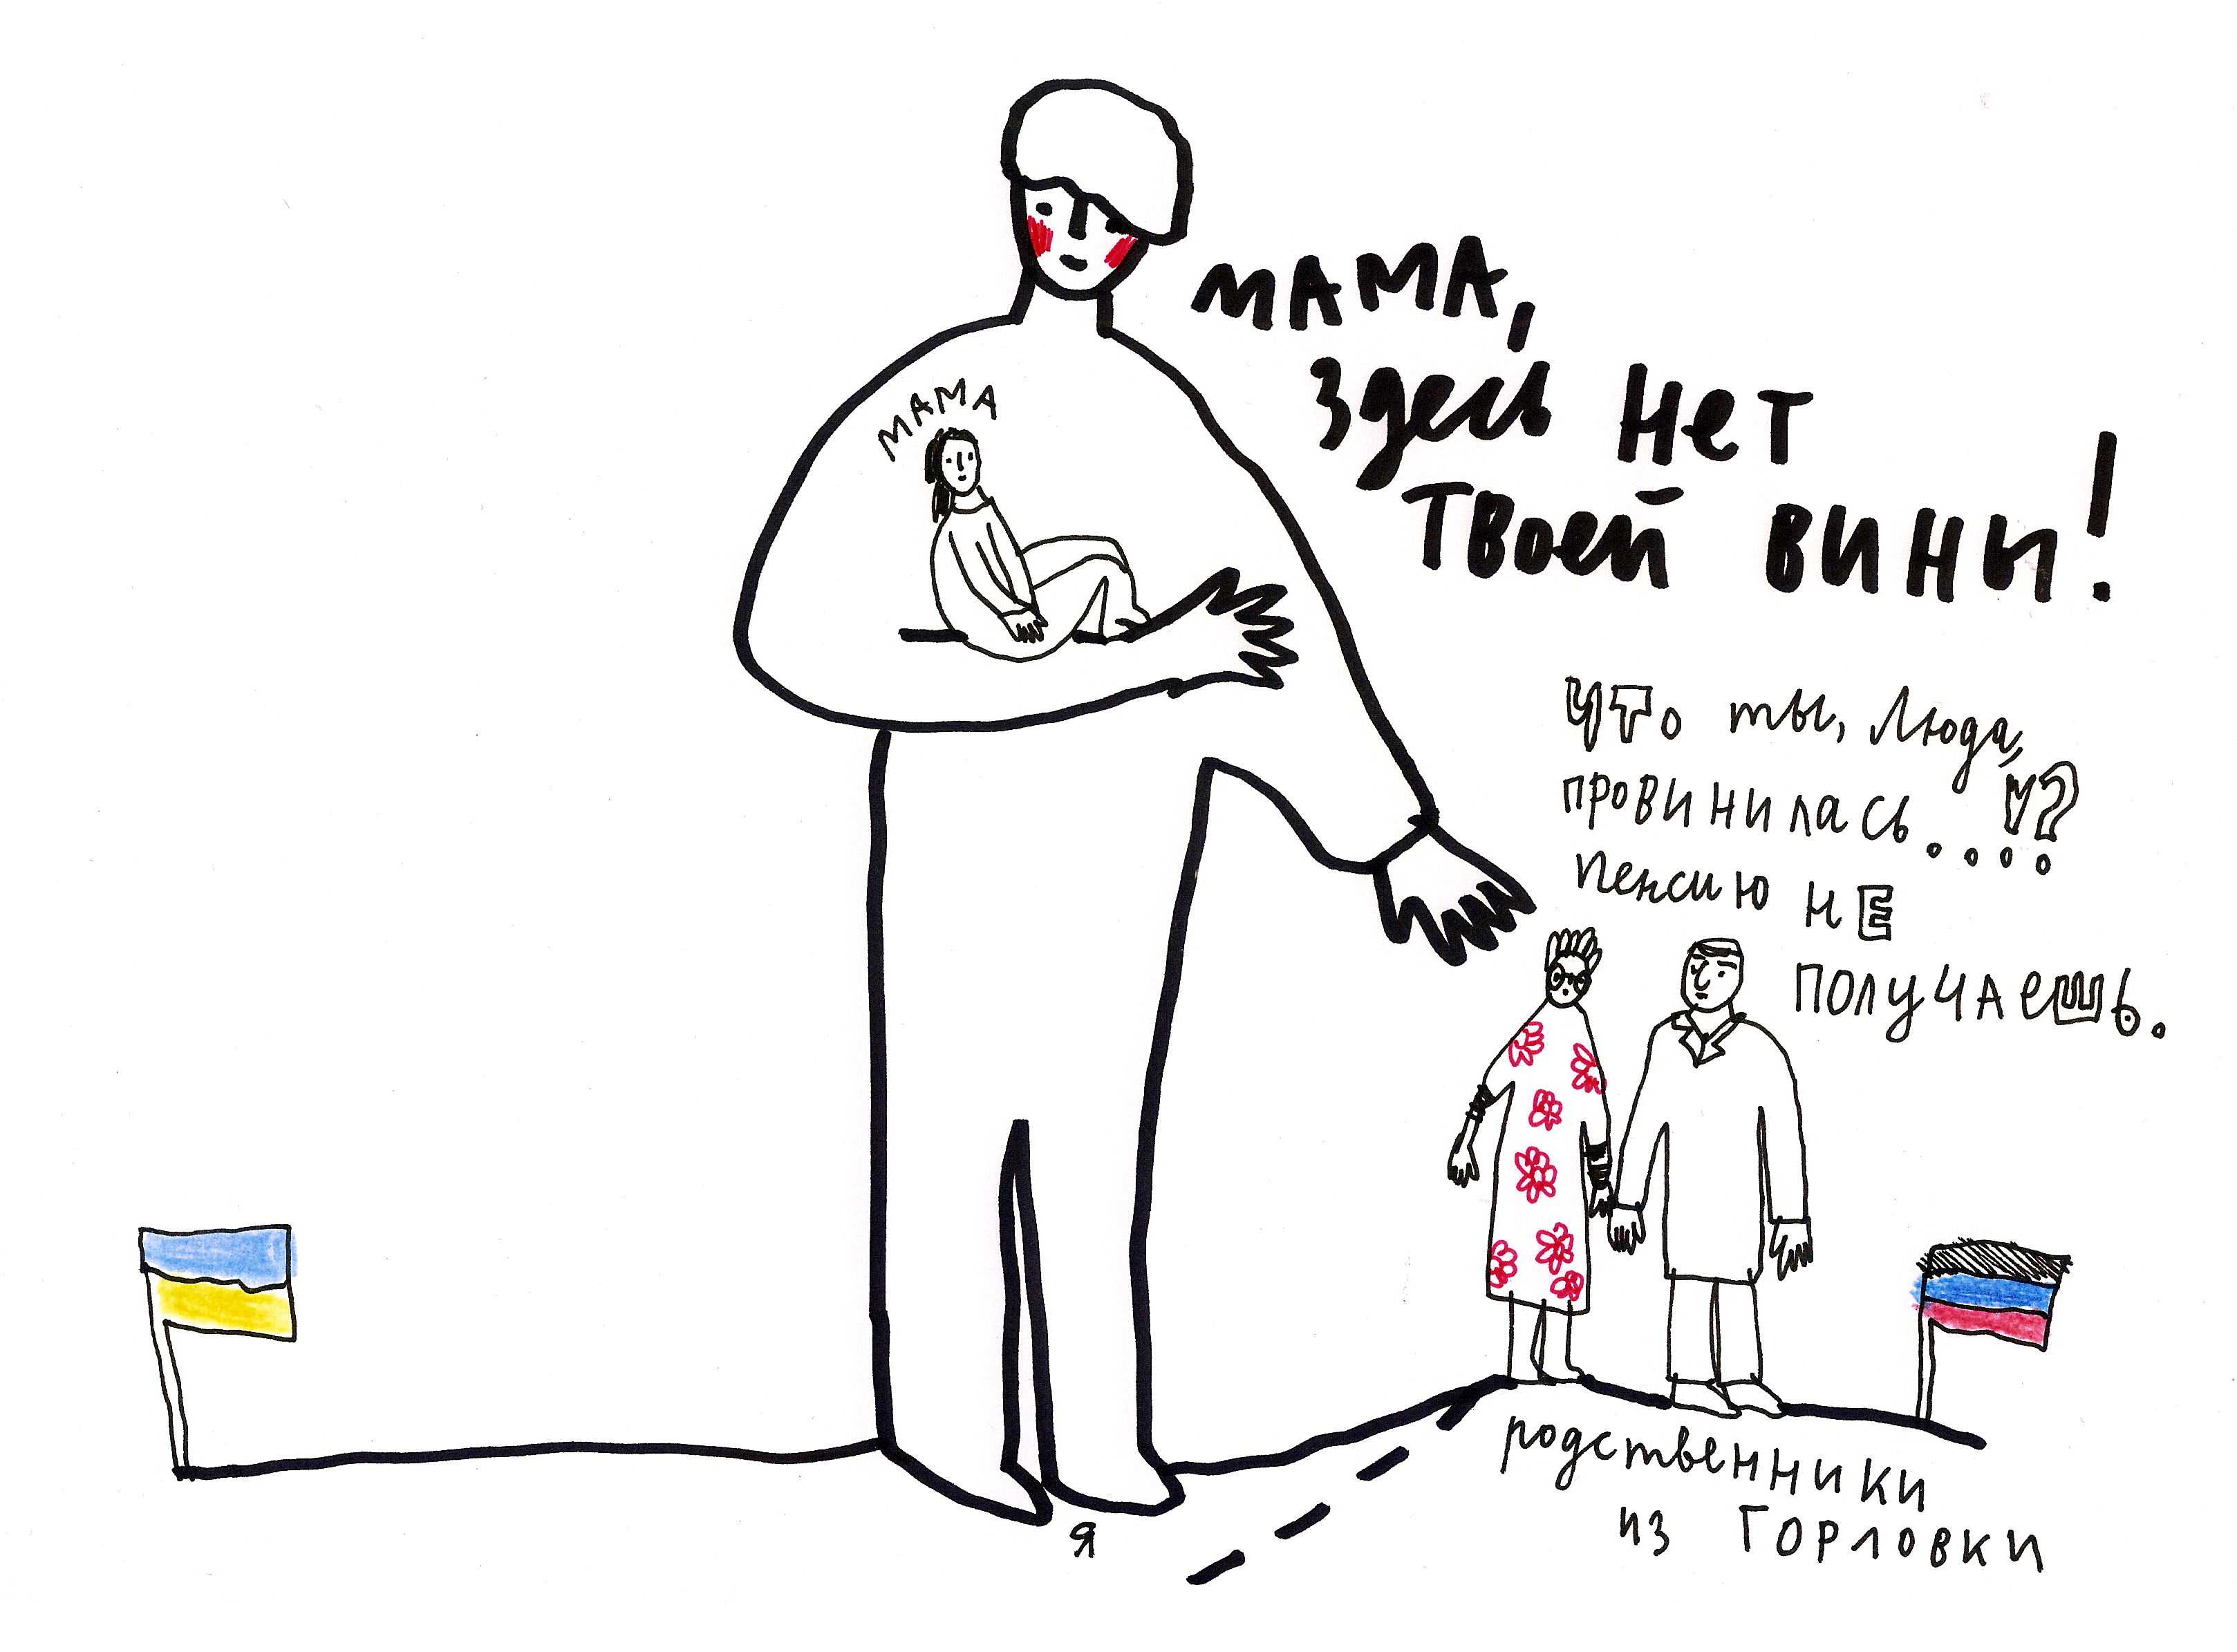 мама,
здесь нет
твоей вини!
мама
что ты, Люда,
провинилась...!?
пенсию не
получаешь.
я
родственники
из Горловки